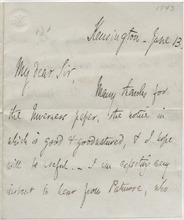 1843
Kensington - June 13.
My dear Sir,
Many thanks for
the Inverness paper, the notice in
which is good & goodnatured, & I hope
will be useful. - I am expecting every
moment to hear from Patmore, who